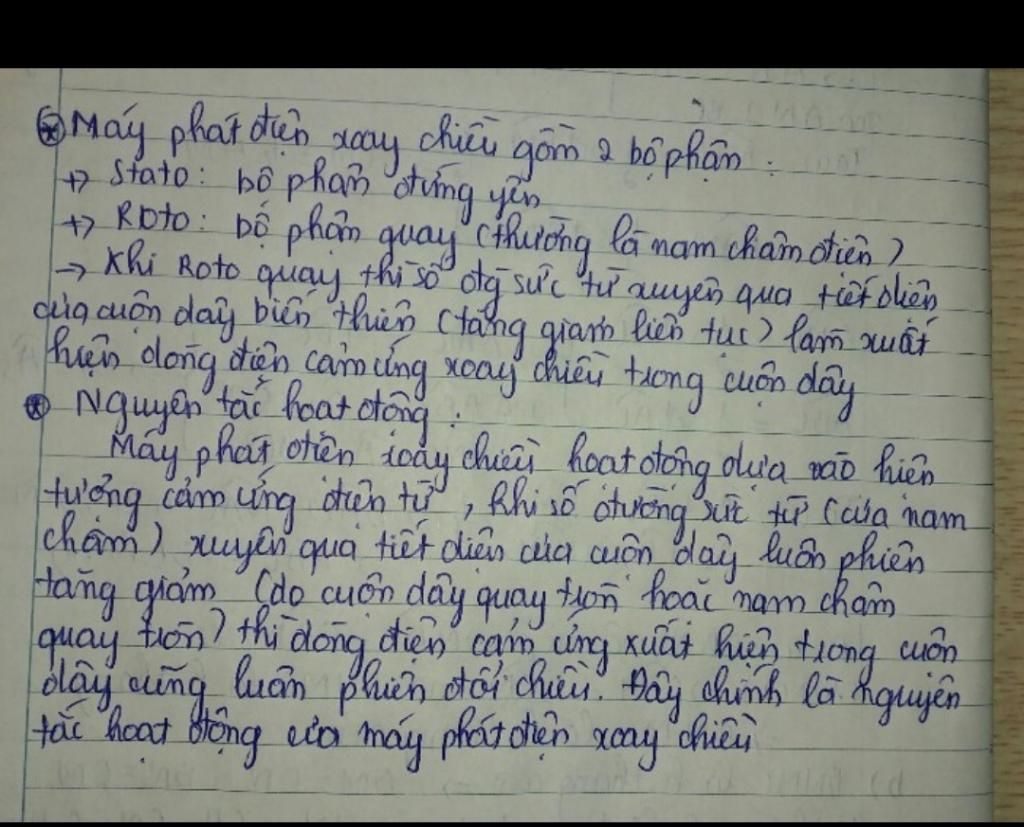 ⊛ Máy phát điện xoay chiều gồm 2 bộ phận :
+> Stato: bộ phận đứng yên
+> Roto: bộ phận quay (thường là nam châm điện)
→ Khi Roto quay thì số đg sức từ xuyên qua tiết diện
của cuộn dây biến thiên (tăng giảm liên tục) làm xuất
hiện dòng điện cảm ứng xoay chiều trong cuộn dây
⊛ Nguyên tắc hoạt động :
Máy phát điện xoay chiều hoạt động dựa vào hiện
tượng cảm ứng điện từ , khi số đường sức từ (của nam
châm) xuyên qua tiết diện của cuộn dây luôn phiên
tăng giảm (do cuộn dây quay tròn hoặc nam châm
quay tròn) thì dòng điện cảm ứng xuất hiện trong cuộn
dây cũng luân phiên đổi chiều. Đây chính là nguyên
tắc hoạt động của máy phát điện xoay chiều